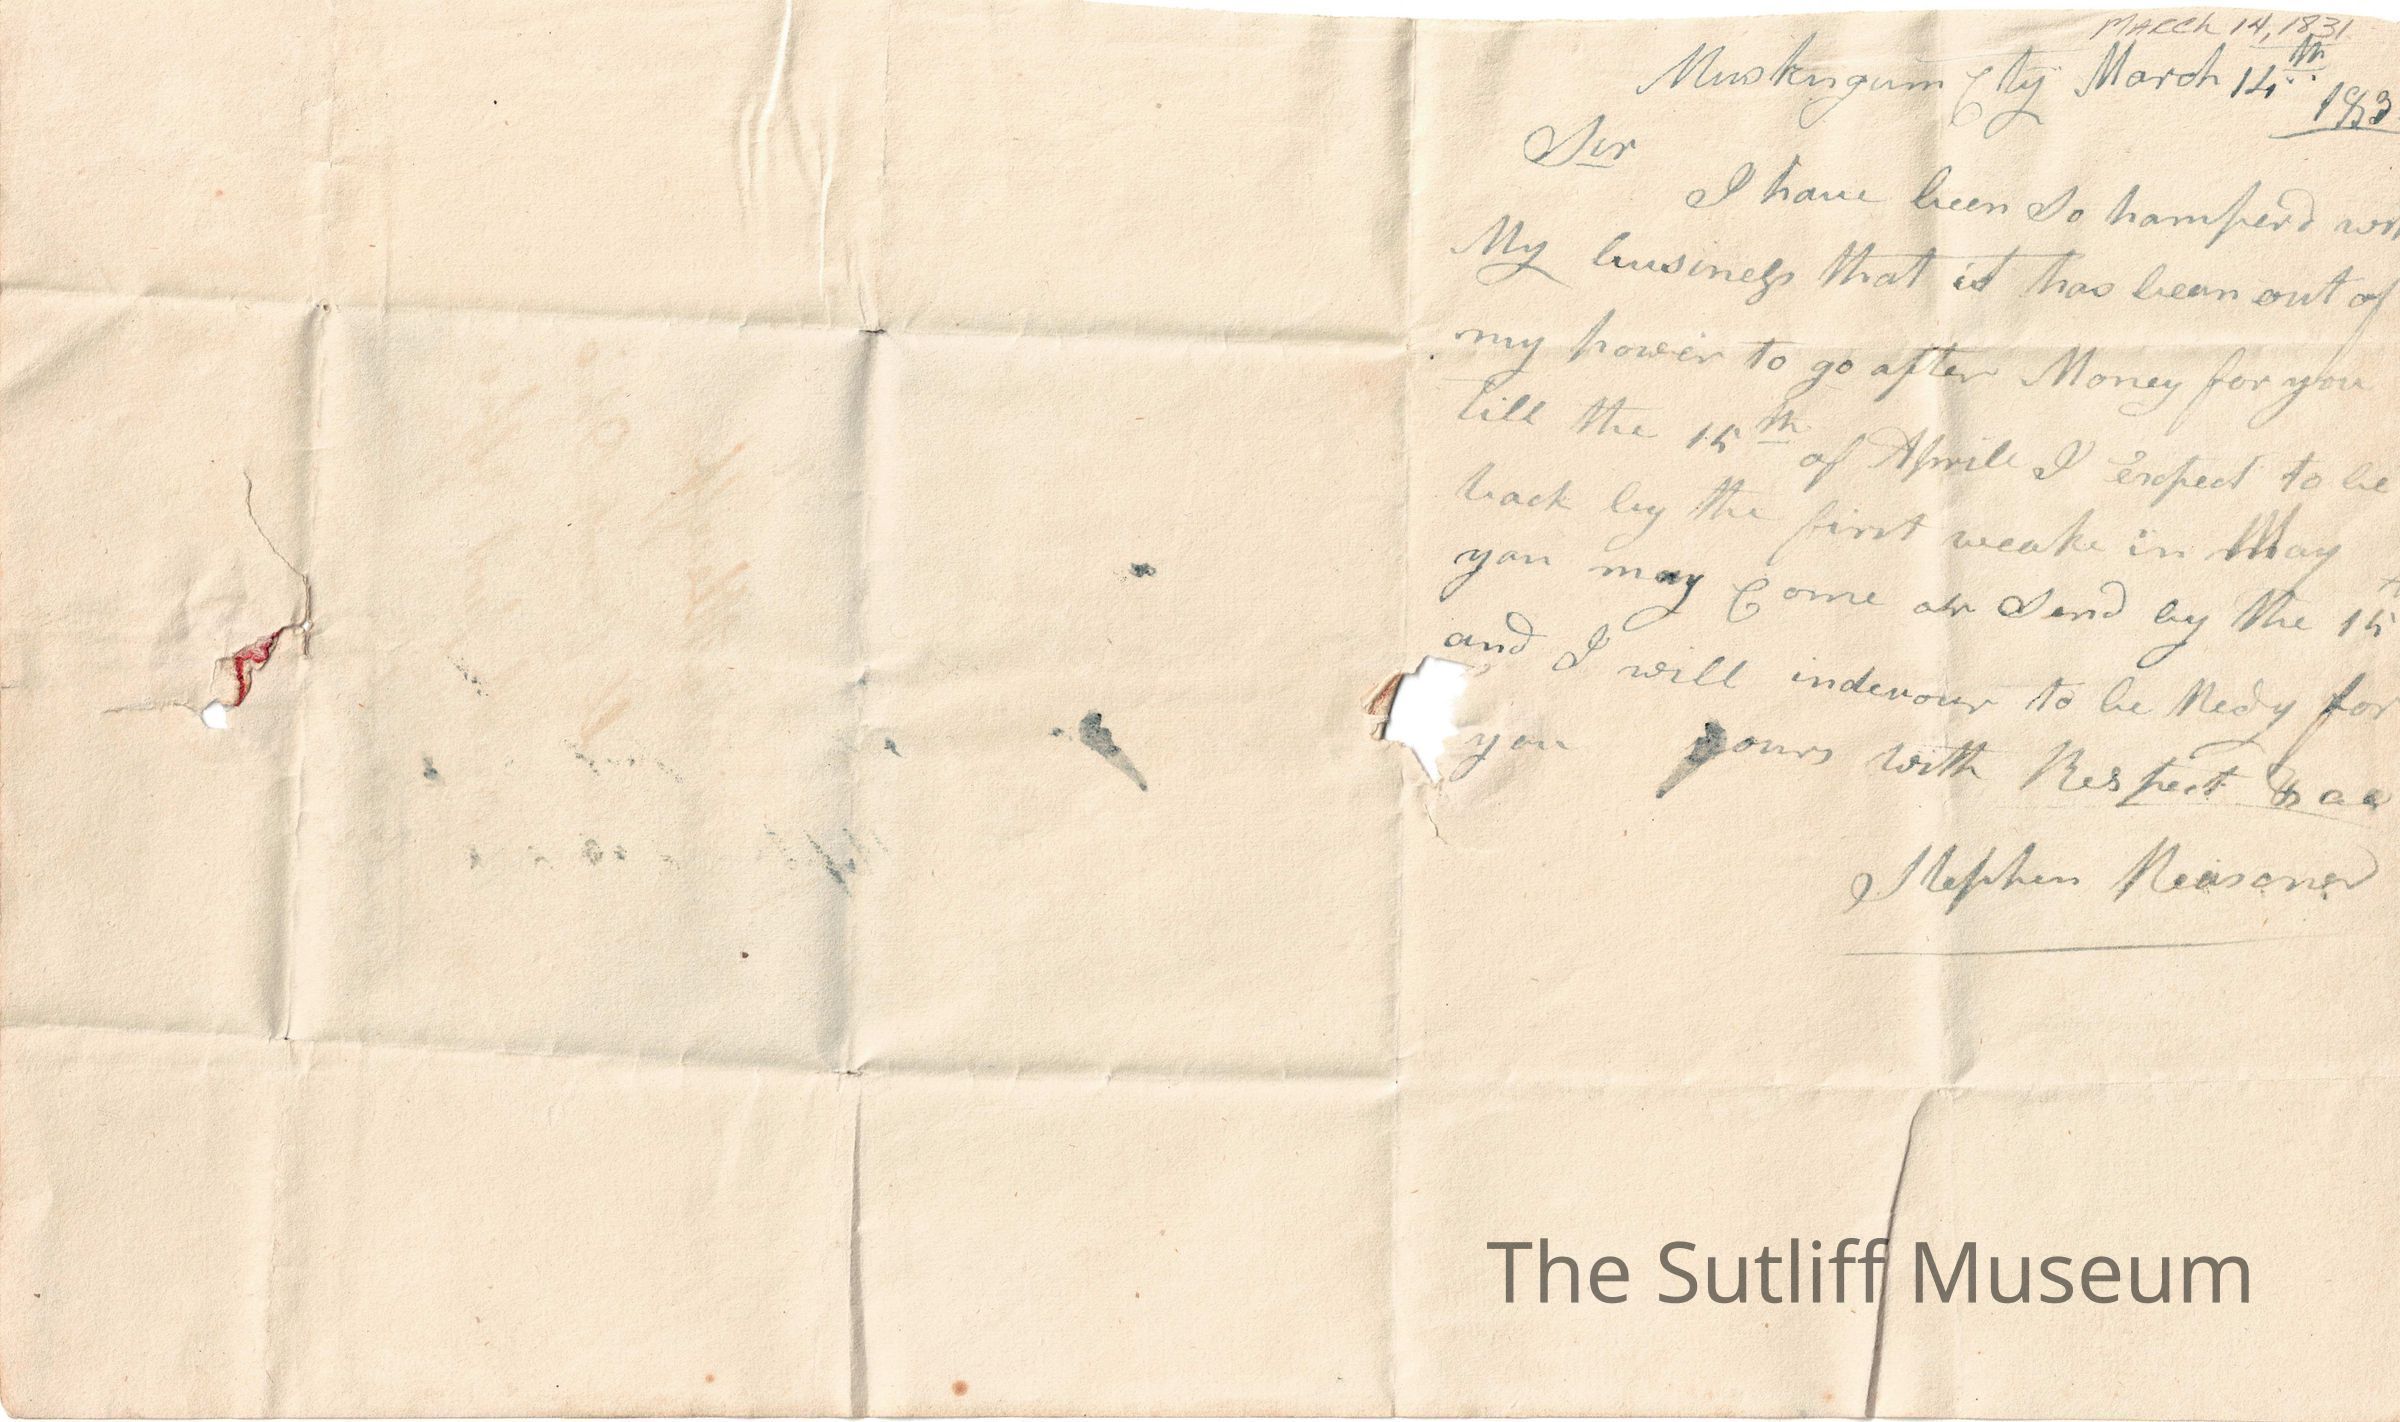 MARCH 14, 1831
Muskingum Cty March 14th 183
Sir
I have been So hamperd
My business that it has bean out of
my power to go after Money for you
till the 15th of Aprill I Expect to be
back by the first weake in May
you may Come or Send by the 15
and I will indevour to be Redy for
you yours with Respect &
Stephen Reasoner
The Sutliff Museum